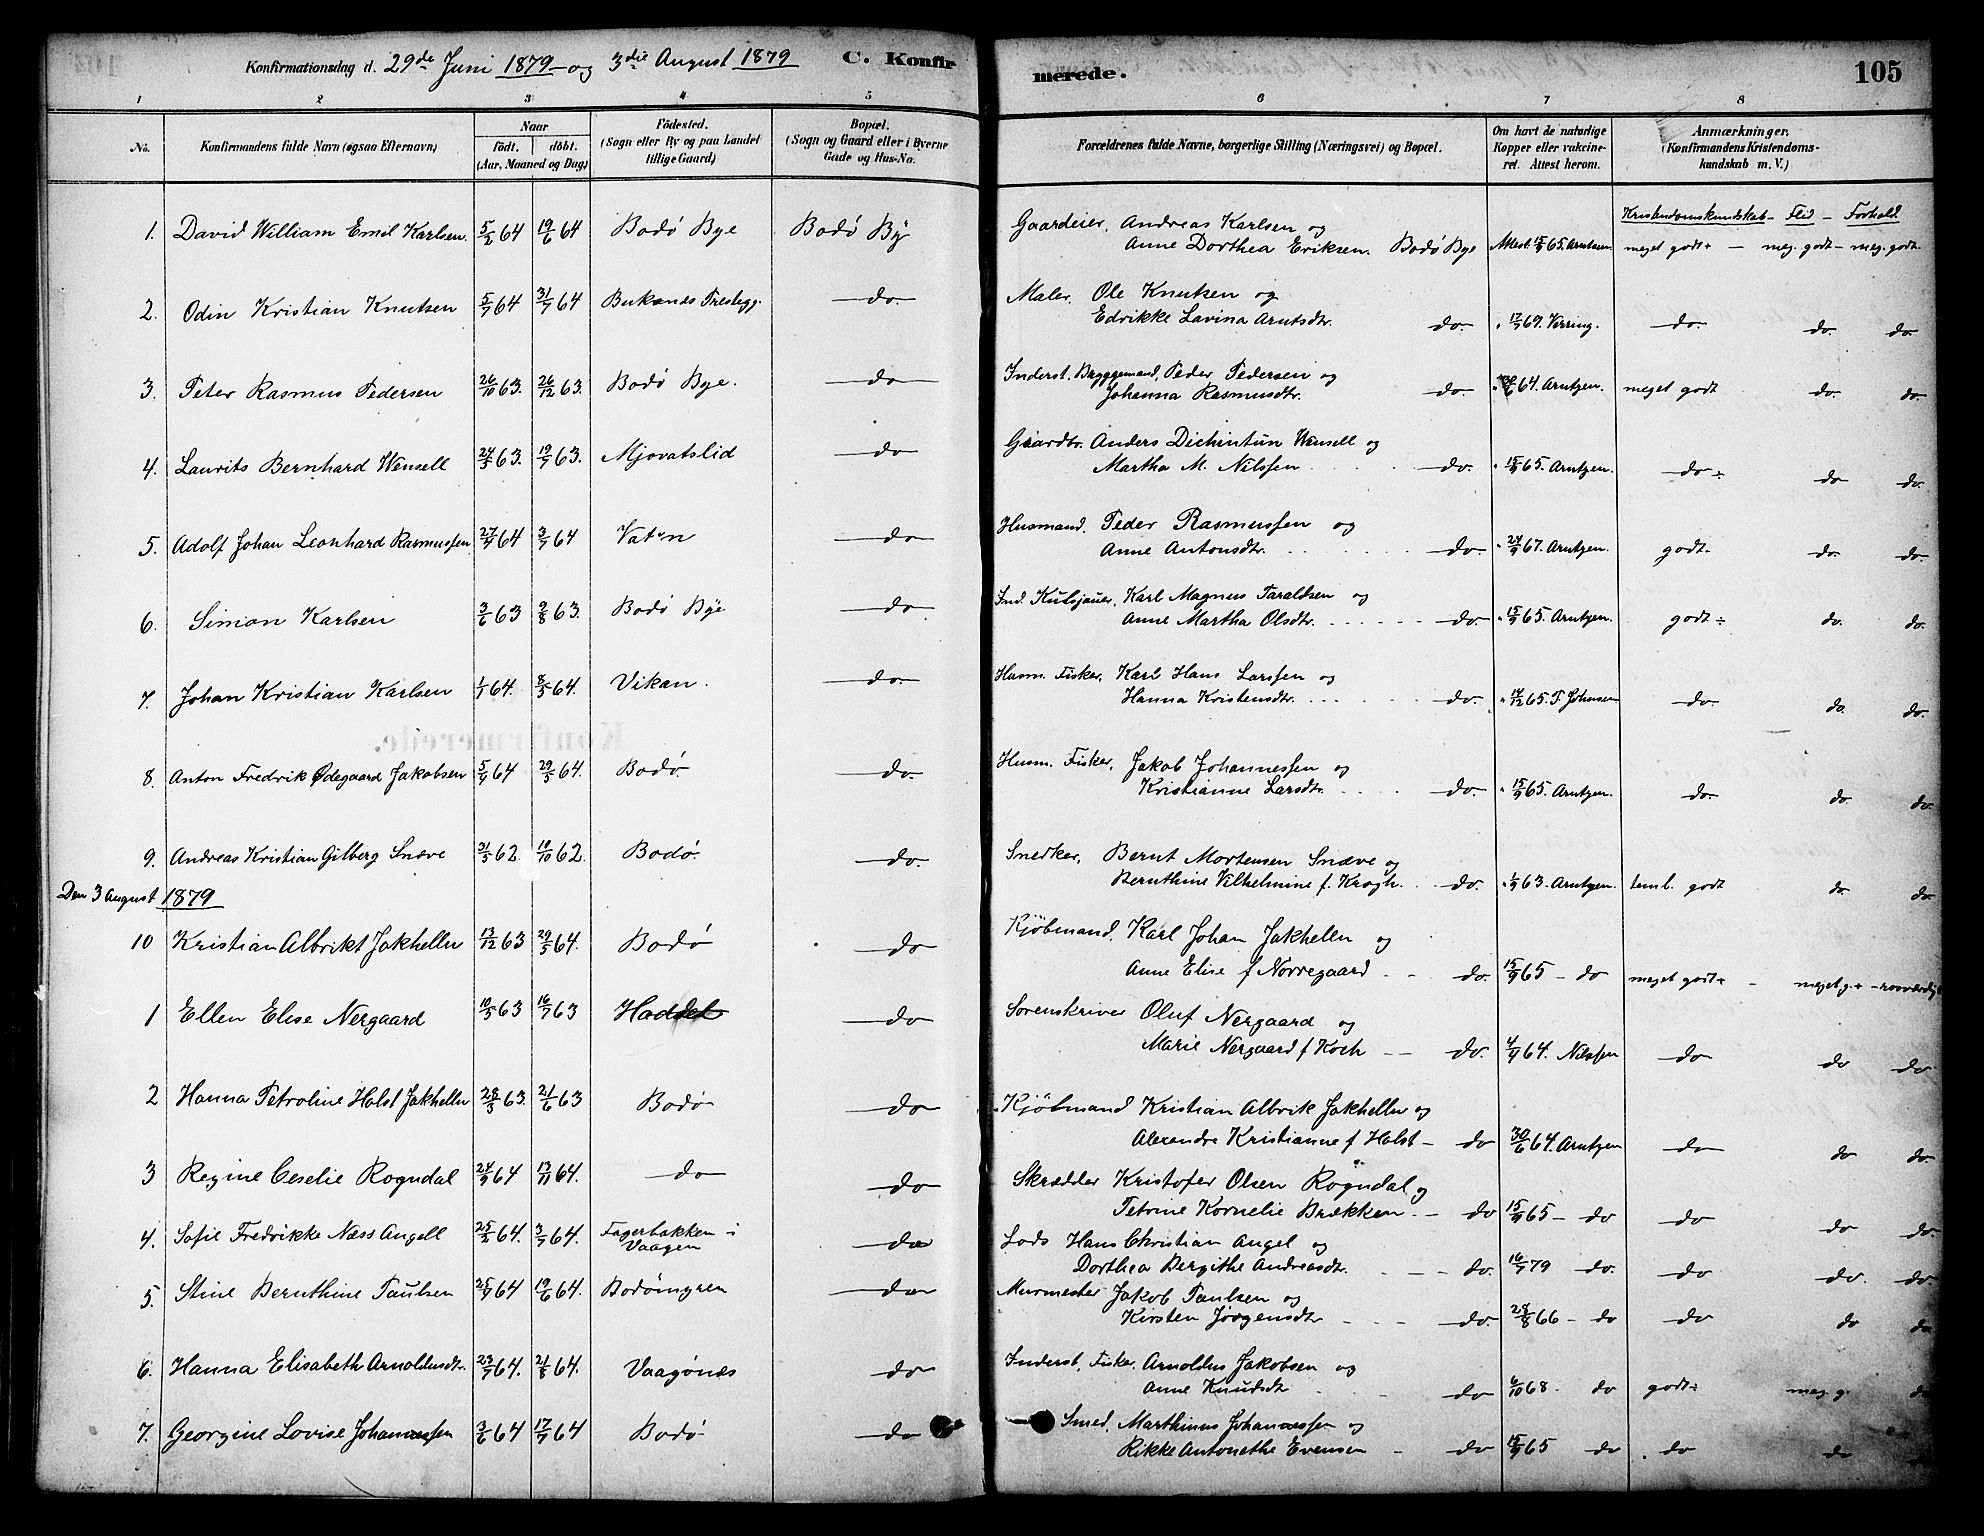 Konfirmationsdag d. 29de Juni 1879 og 3die August 1879 C. Konfirmerede. 105
1 2 3 4 5 6 7 8
No. Konfirmandens fulde Navn (ogsaa Efternavn) Naar födt. döbt. (Aar, Maaned og Dag) Födested. (Sogn eller By og paa Landet tillige Gaard) Bopæl. (Sogn og Gaard eller i Byerne Gade og Hus-No. Forældrenes fulde Navne, borgerlige Stilling (Næringsvei) og Bopæl. Om havt de naturlige Kopper eller vakcineret. Attest herom. Anmærkninger. (Konfirmandens Kristendomskundskab m. V.)
Kristendomskundskab - Flid - Forhold
1. David William Emil Karlsen. 5/2 64 19/6 64 Bodø Bye Bodø By Gaardeier, Andreas Karlsen og
Anne Dorthea Eriksen. Bodø Bye Attest 15/9 65. Arntzen meget godt + - meg. godt - meg. godt
2. Odin Kristian Knutsen 5/7 64 31/7 64 do. Maler, Ole Knutsen og
Edrikke Lavina Arntsdtr. do. " 17/7 69. Verring. do. do. do.
3. Peter Rasmus Pedersen 26/10 63. 26/12 63. Bodø Bye. do Inderst. Bryggemand, Peder Pedersen og
Johanna Rasmusdtr. do. 64. Arntzen. meget godt do. do.
4. Laurits Bernhard Wensell 24/5 63. 19/7 63. Mjovatslid do Gaardbr. Anders Wensell og
Martha M. Nilssen do. " 15/9 65. Arntzen. do ÷ do do.
5. Adolf Johan Leonhard Rasmussen 27/4 64 3/7 64 Vat do Husmand. Peder Rasmussen og
Anne Antonsdtr. do. " 24/9 67. Arntzen. godt. do. do.
6. Simon Karlsen 3/6 63 9/8 63. Bodø Bye do Ind. Karl Magnus Taraldsen og
Anne Martha Olsdtr. do. " 15/9 65. Arntzen. godt ÷ do. do.
7. Johan Kristian Karlsen 1/1 64. 8/5 64. Vikan. do. Husm. Fisker, Karl Hans Larssen og
Hanna Kristensdtr. do. " 14/12 65. T. Johnsen do. do. do.
8. Anton Fredrik Ødegaard Jakobsen 5/4 64 29/5 64. Bodø. do. Husm. Fisker, Jakob Johannessen og
Kristianne Larsdtr. do. " 15/9 65. Arntzen. do. do. do.
9. Andreas Kristian Gilberg Snæve 31/5 62. 19/10 62. Bodø. do. Snedker, Bernt Mortensen Snæve og
Bernthine Vilhelmine f. Krogh. do. " 1/9 63. Arntzen. teml. godt do. do.
Den 3 August 1879
10 Kristian Albrikt Jakhelln 13/12 63 29/5 64. Bodø do Kjöbmand, Karl Johan Jakhelln og
Anne Elise f Norregaard do. 15/9 65 - do meget godt + - meget g. +
1 Ellen Elise Nergaard 10/5 63 16/7 63 Haddel do Sorenskriver Oluf Nergaard og
Marie Nergaard f Koch do. 4/9 64. Nilssen do do do
2 Hanna Petroline Holst Jakhelln 28/3 63. 21/6 63 Bodø do Kjöbmand Kristian Albrik Jakhelln og
Alexandra Kristianne f Holst - do 30/6 64. Arntzen do do do.
3 Regine Ceselie Rogndal 24/9 64 13/11 64. do do Skrædder Kristofer Olsen Rogndal og
Petrine Kornelie Brækken. - do 15/9 65 - do do do do.
4. Sofie Fredrikke Næss Angell 25/5 64. 3/7 64. Fagerbakken i Vaagen do Lods Hans Christian Angel og
Dorthea Bergithe Andreasdtr. do. 16/7 79 do. do do. do.
5. Stine Bernthine Paulsen 25/4 64 19/6 64. do Murmester Jakob Paulsen og
Kirsten Jørgensdtr do. 28/8 66 - do do do do.
6. Hanna Elisabeth Arnoldusdtr. 23/7 64. 21/8 64. Vaagønæs do Inderst, Fisker. Arnoldus Jakobsen og
Anne Knudsdt do 6/10 68. do godt ÷ meg. g.
7. Georgine Lovise Johannessen 3/6 64 17/7 64 Bodø do Smed, Marthinus Johannessen og
Rikke Antonethe Evensen do 15/9 65 do do do